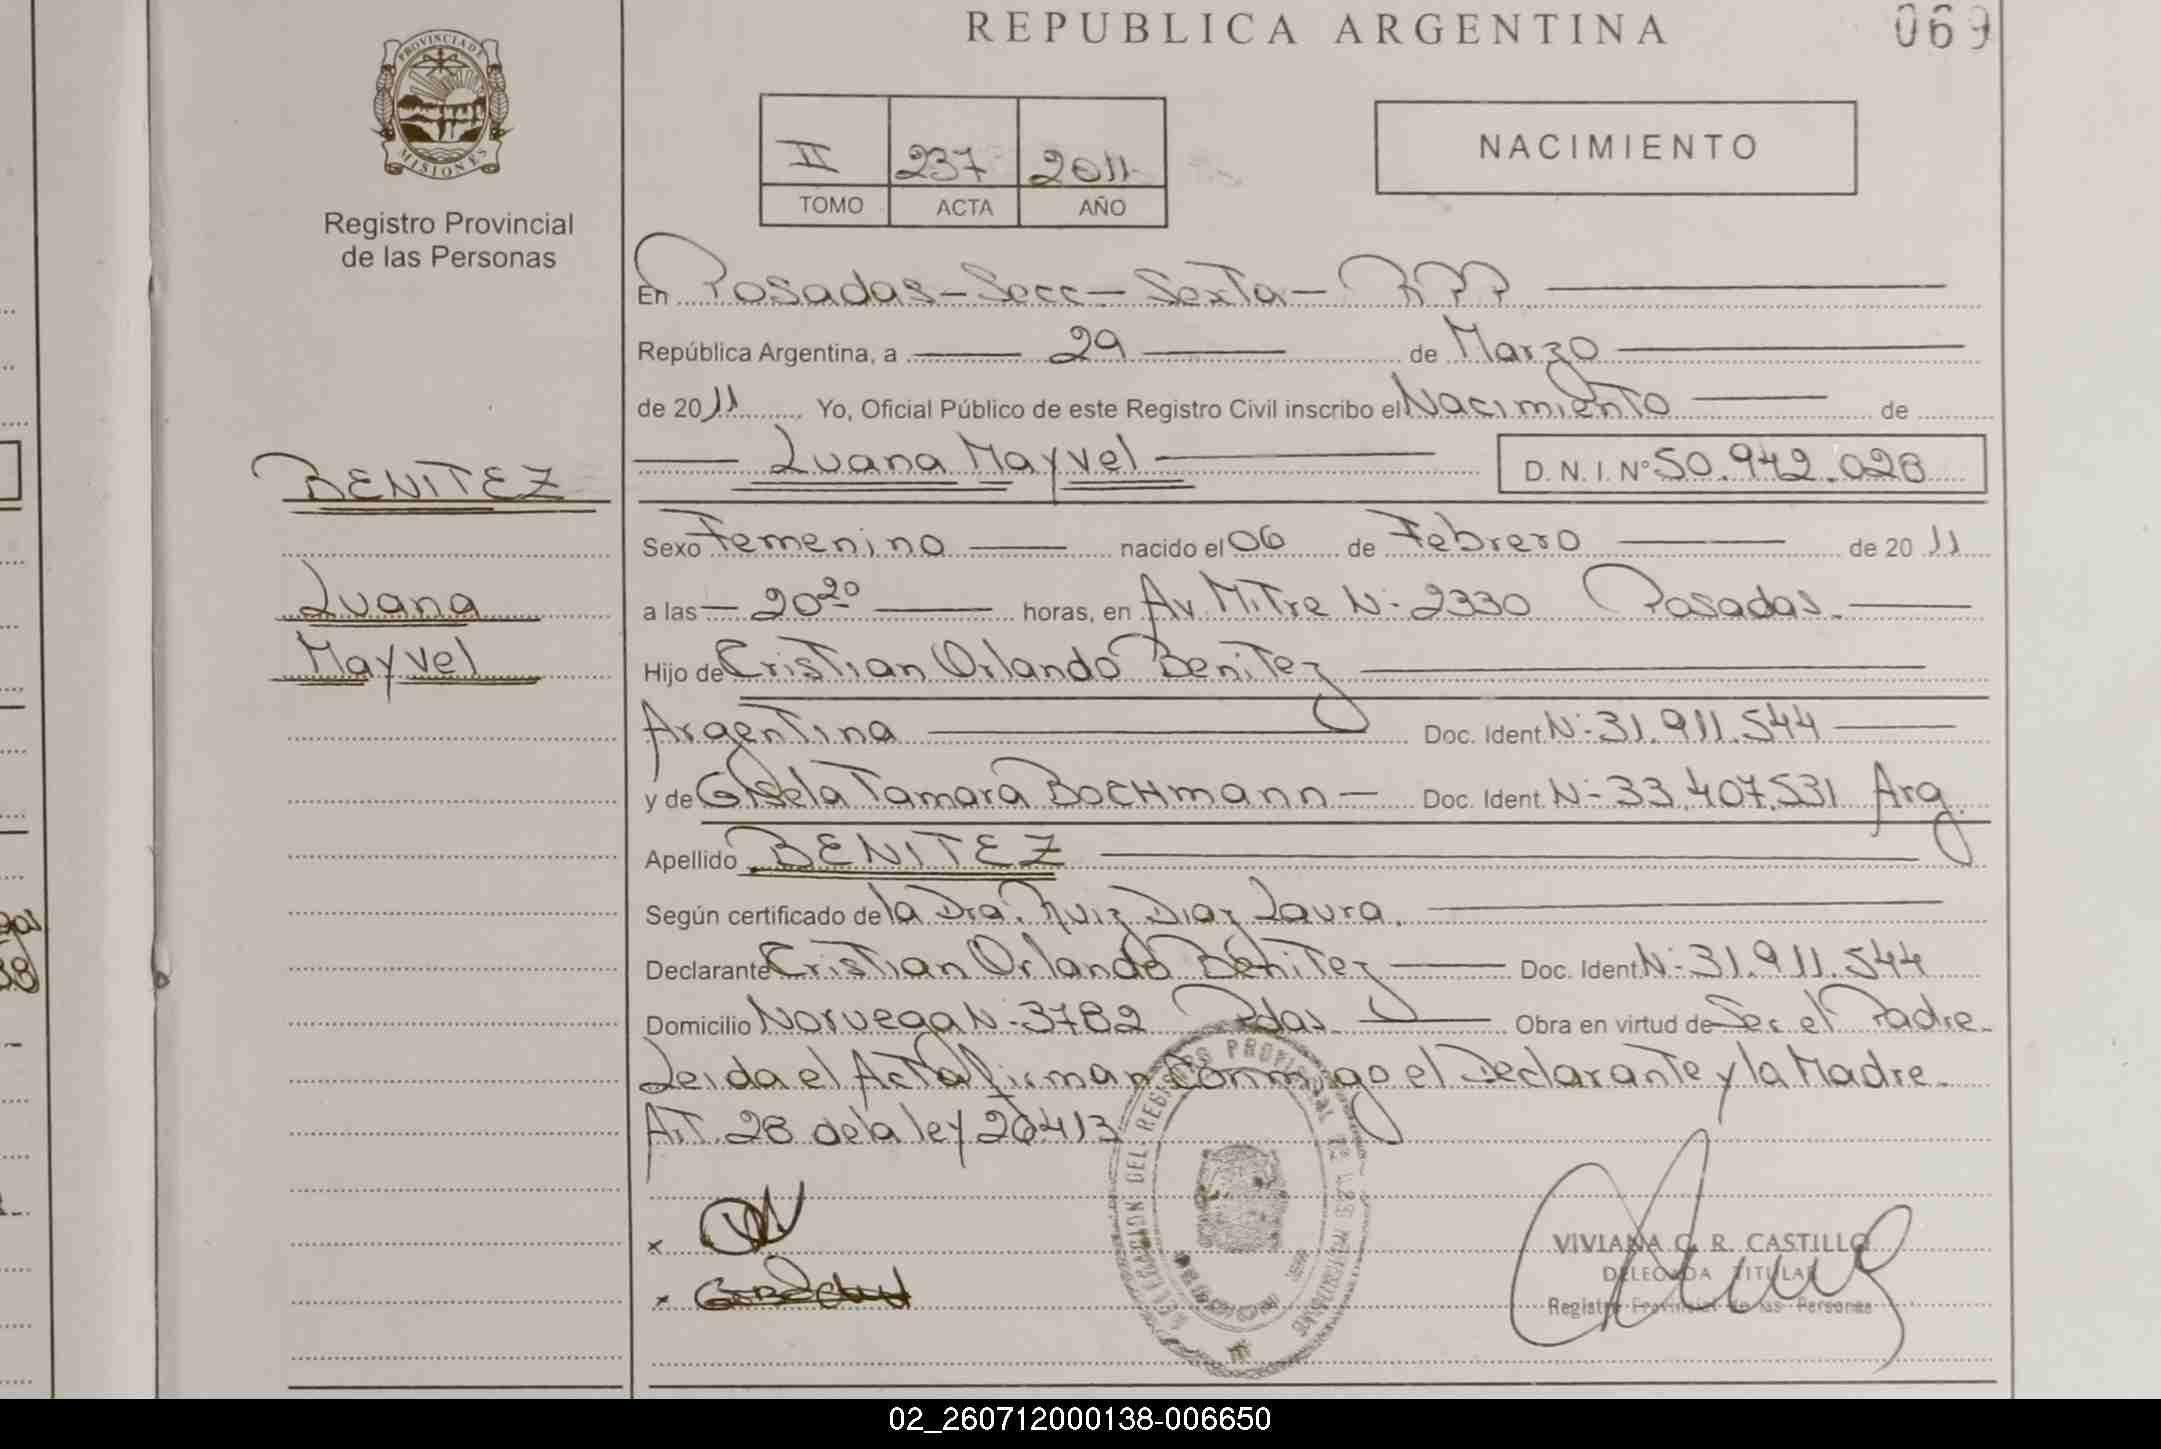 REPUBLICA ARGENTINA
069
PROVINCIA DE
MISIONES
Registro Provincial
de las Personas
II 237 2011
TOMO ACTA AÑO
NACIMIENTO
En Posadas-Secc-Sexta-RPP
República Argentina, a 29 de Marzo
de 2011 Yo, Oficial Público de este Registro Civil inscribo el Nacimiento de
Luana Mayvel D. N. I. Nº 50.942.028
BENITEZ
Luana
Mayvel
Sexo Femenino nacido el 06 de Febrero de 2011
a las 20 20 horas, en Av. Mitre N- 2330 Posadas.
Hijo de Cristian Orlando Benitez
Argentina Doc. Ident. N- 31.911.544
y de Gisela Tamara Bochmann Doc. Ident. N- 33.407.531 Arg.
Apellido BENITEZ
Según certificado de la Dra. Ruiz Diaz Laura.
Declarante Cristian Orlando Benitez Doc. Ident. N- 31.911.544
Domicilio Noruega N- 3782 Pdas. Obra en virtud de Ser el Padre.
Leida el Acta firman Conmigo el Declarante y la Madre.
Art. 28 de la ley 26413
x
x
DELEGACION DEL REGISTRO PROVINCIAL DE LAS PERSONAS
VIVIANA C. R. CASTILLO
DELEGADA TITULAR
Registro Provincial de las Personas
02_260712000138-006650